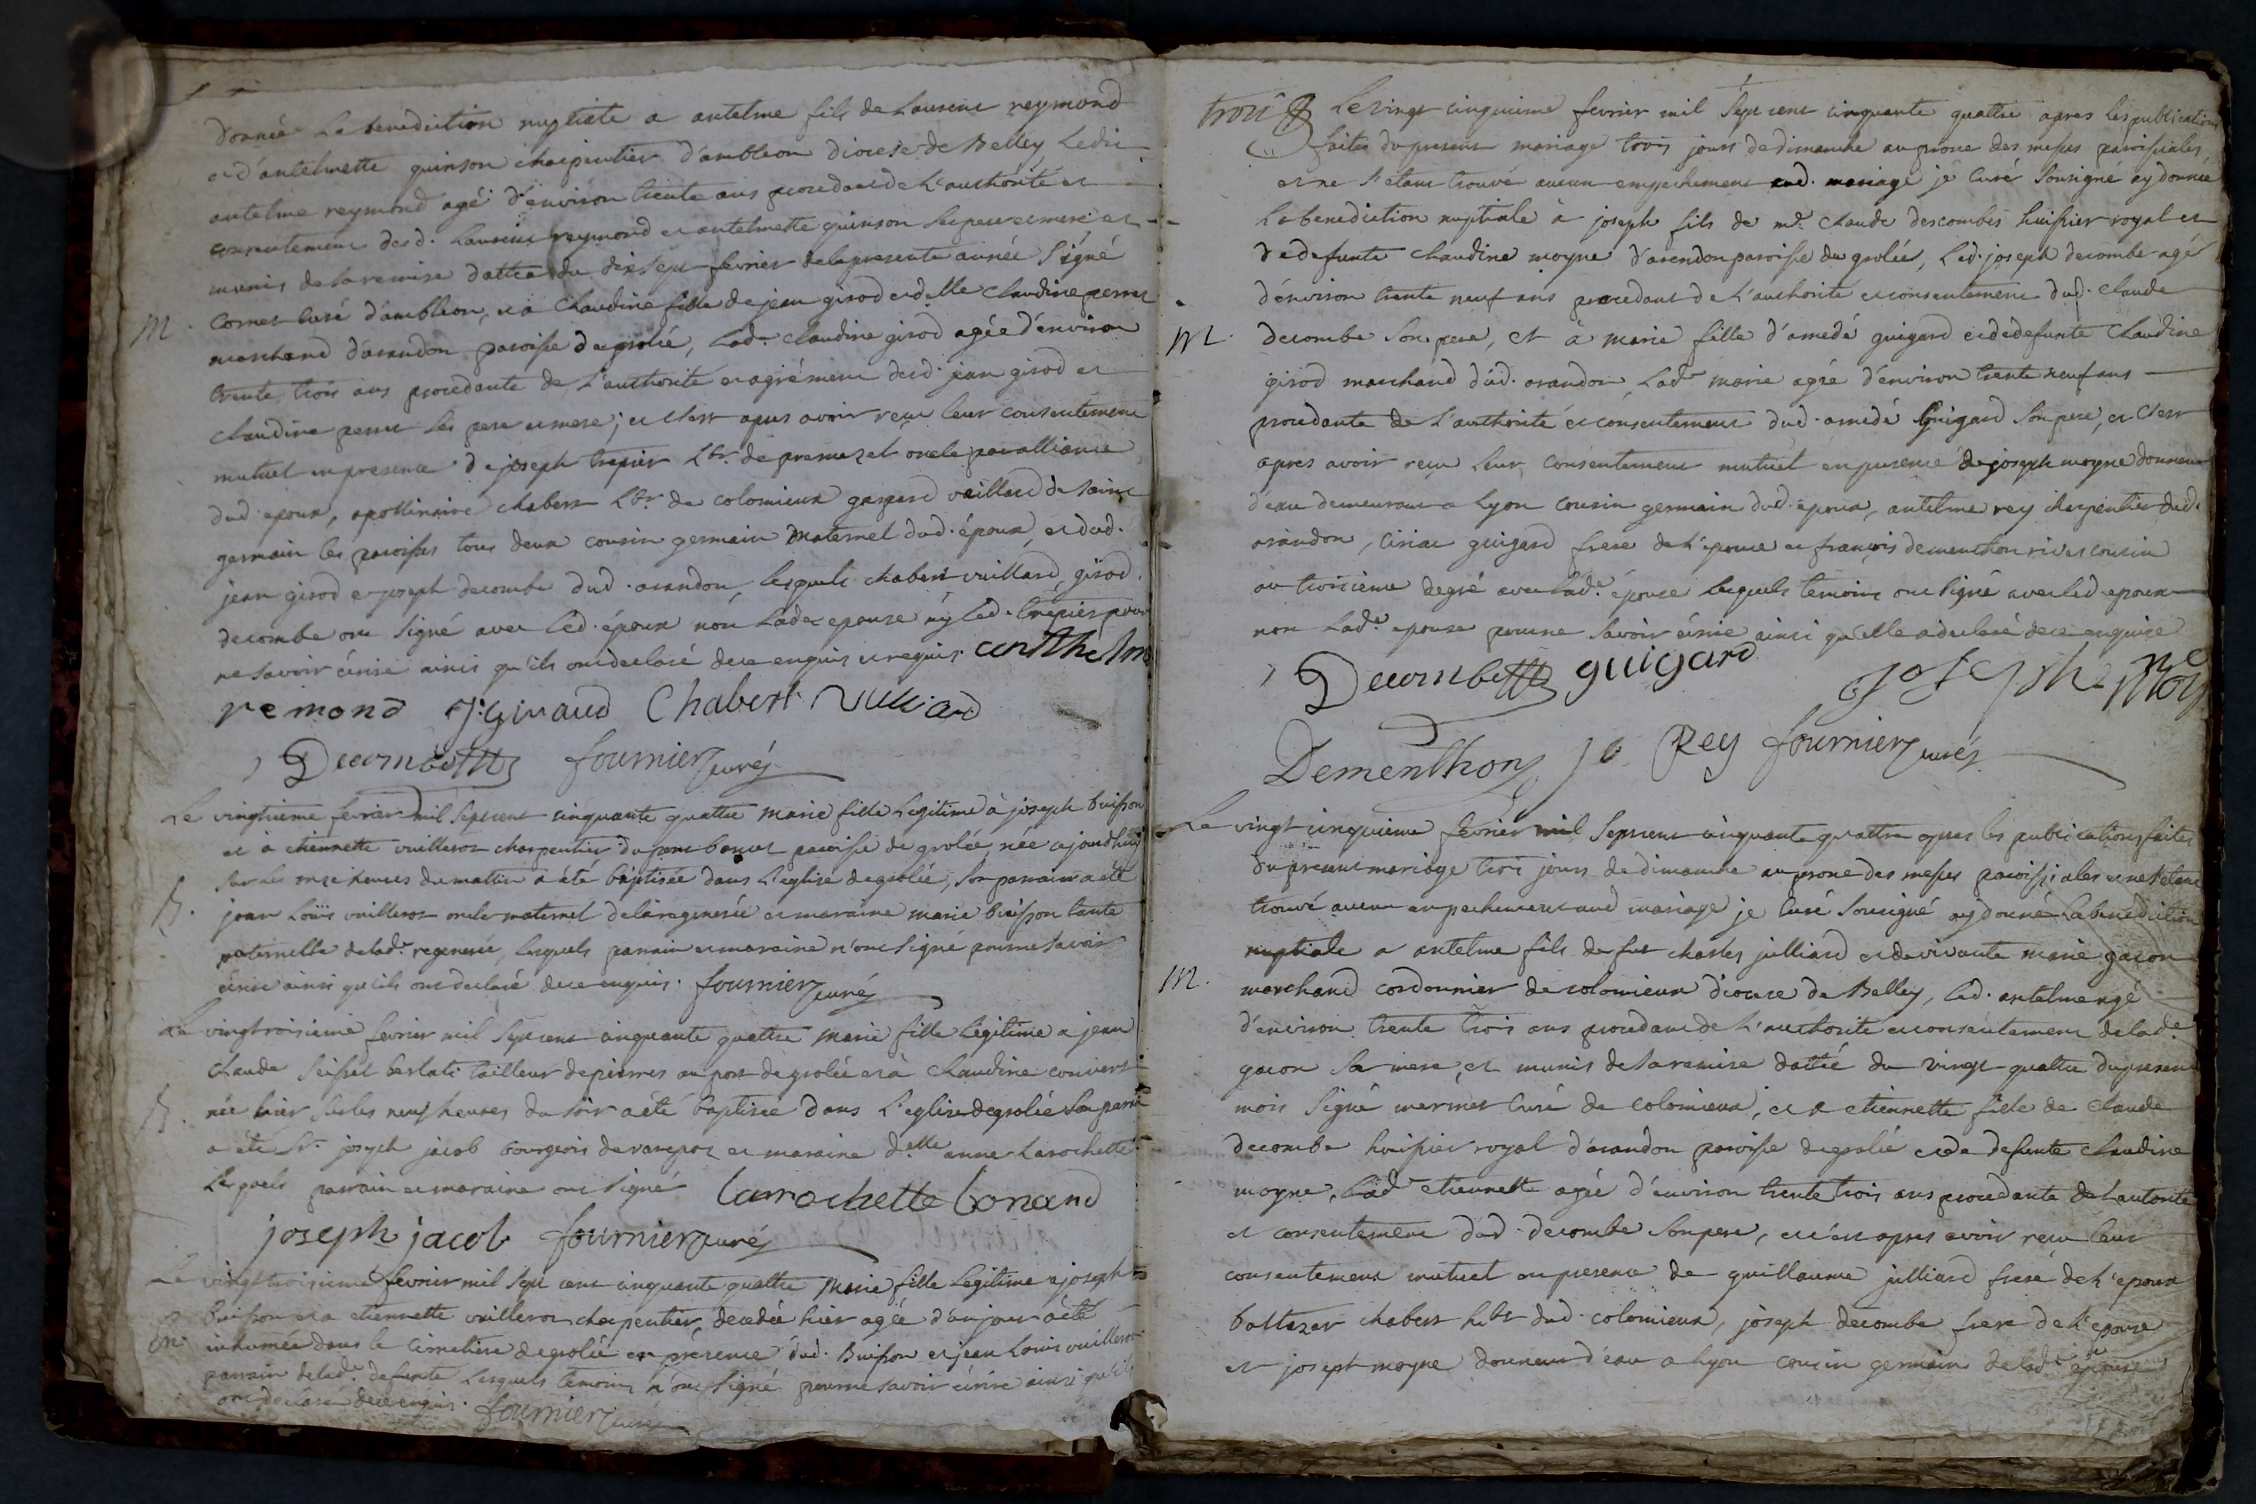 donnée La benediction nuptiale a antelme fils de Laurent reymond
et d'antelmette quinson charpentier d'ambleon diocese de Belley Ledit
antelme reymond agé d'environ trente ans procedant de L'authorité et
consentement desd. Laurent reymond et antelmette quinson ses pere et mere et
munis de sa remise dattée du dix sept fevrier de la presente année Signé
Cornet Curé d'ambleon, et a Claudine fille de jean girod et delle Claudine perret
M.
marchand d'arandon paroisse de grolié, Lade Claudine girod agée d'environ
trente trois ans procedante de L'authorité et agrément desd. jean girod et
Claudine perret ses pere et mere; et c'est apres avoir reçu leur consentement
mutuel en presence de joseph trepier Lbr. de premezel oncle par alliance
dud. epoux, apollinaire chabert Lbr. de colomieux gaspard vuillard de saint
germain les paroisses tous deux cousin germain Maternel dud. époux, et dud.
jean girod et joseph decombe dud. arandon, lesquels chabert vuillard, girod,
decombe ont signé avec led. époux non Lade epouse ny Led. trepier pour
ne savoir écrire ainsi qu'ils ont declaré de ce enquis et requis. anthelme
remond J. Giraud Chabert Vulliard
Decombe fournier curé
Le vingtieme fevrier mil sept cent cinquante quattre Marie fille Legitime à joseph buisson
et à etiennette vuillerot charpentier du port paroisse de grolié, née cejourd'huy
sur les onze heures du mattin a été baptisée dans L'eglise de grolié, Son parrain a été
B.
jean Loüis vuillerot oncle maternel de la regenerée et maraine marie buisson tante
paternelle de lade. regenerée, lesquels parrain et maraine n'ont signé pour ne savoir
écrire ainsi qu'ils ont declaré de ce enquis. fournier curé
Le vingtroisieme fevrier mil sept cent cinquante quattre Marie fille Légitime a jean
Claude Seissel tailleur de pierres au port de grolié et à Claudine convert
née hier sur les neuf heures du soir a été baptisée dans L'eglise de grolié Son parrain
B.
a été Sr. joseph jacob bourgeois de et maraine delle anne Larochette
Lesquels parrain et maraine ont signé Larochette bonand
joseph jacob fournier curé
Le vingttroisieme fevrier mil sept cent cinquante quattre Marie fille Legitime a joseph
Buisson et a etiennette vuillerot charpentier, decedée hier agée d'un jour a été
inhumée dans le Cimetiere de grolié en presence dud. Buisson et jean Louis vuillerot
parrain de lade. defunte Lesquels temoins n'ont signé pour ne savoir écrire ainsi qu'ils
ont declaré de ce enquis. fournier curé
trois Le vingt cinquieme fevrier mil sept cent cinquante quattre apres les publications
faites du present mariage trois jours de dimanche au prone des messes paroissiales
et ne s'etant trouvé aucun empechement aud. mariage je Curé Sousigné ay donnée
La benediction nuptiale à joseph fils de me. Claude descombes huissier royal et
de defunte Claudine moyne d'arendon paroisse de grolée, Led. joseph decombe agé
d'environ trente neuf ans procedant de L'authorité et consentement dud. Claude
M.
decombe Son pere, et à marie fille d'amedé guigard et de defunte Claudine
girod marchand dud. arandon, Lade marie agée d'environ trente neuf ans
procedante de L'authorité et consentement dud. amedé Guigard Son pere, et C'est
apres avoir reçu leur consentement mutuel en presence de joseph moyne donneur
d'eau demeurant a Lyon cousin germain dud. époux, antelme rey charpentier dud.
arandon, guigard frere de L'epouse et françois dementhon cousin
au troisieme degré avec lade. épouse lesquels temoins ont signé avec led. epoux
non Lade. epouse pour ne savoir écrire ainsi qu'elle a declaré de ce enquise
Decombe guigard joseph Moy
Dementhon Rey fournier curé
Le vingt cinquieme fevrier mil sept cent cinquante quattre apres les publications faites
du present mariage trois jours de dimanche au prone des messes paroissiales et ne s'etant
trouvé aucun empechement aud mariage je Curé Sousigné ay donné La benediction
nuptiale a antelme fils de fut charles julliard et de vivante marie gacon
M.
marchand cordonnier de colomieux diocese de Belley, Led. antelme agé
d'environ trente trois ans procedant de L'authorité et consentement de lade.
gacon Sa mere, et munis de sa remise dattée du vingt quattre du present
mois Signé mermet Curé de Colomieux, et a etiennette fille de Claude
decombe huissier royal d'arandon paroisse de grolié et de defunte Claudine
moyne, Lade etiennette agée d'environ trente trois ans procedante de L'autorité
et consentement dud. decombe Son pere, et c'est apres avoir reçu leur
consentement mutuel en presence de guillaume julliard frere de L'epoux
baltezar chabert hbt dud. colomieux, joseph decombe frere de L'epouse
et joseph moyne donneur d'eau a Lyon cousin germain de lade epouse